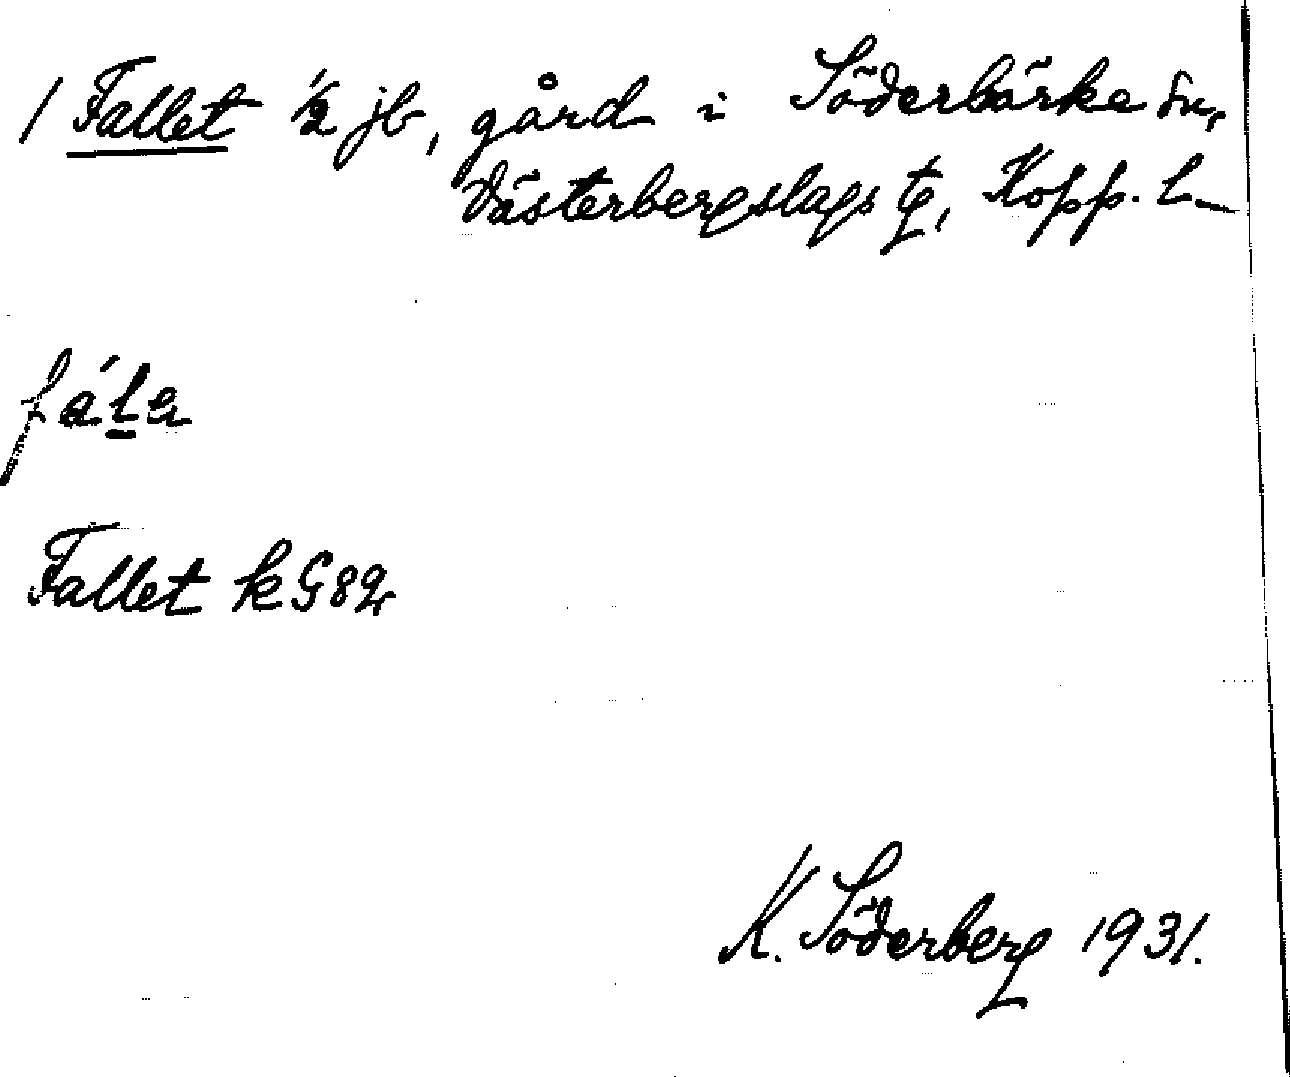 / Fallet ½ jb, gård i Söderbärke sn,
Västerbergslags tg, Kopp. l
fál̲a
Fallet k G82
K. Söderberg 1931.